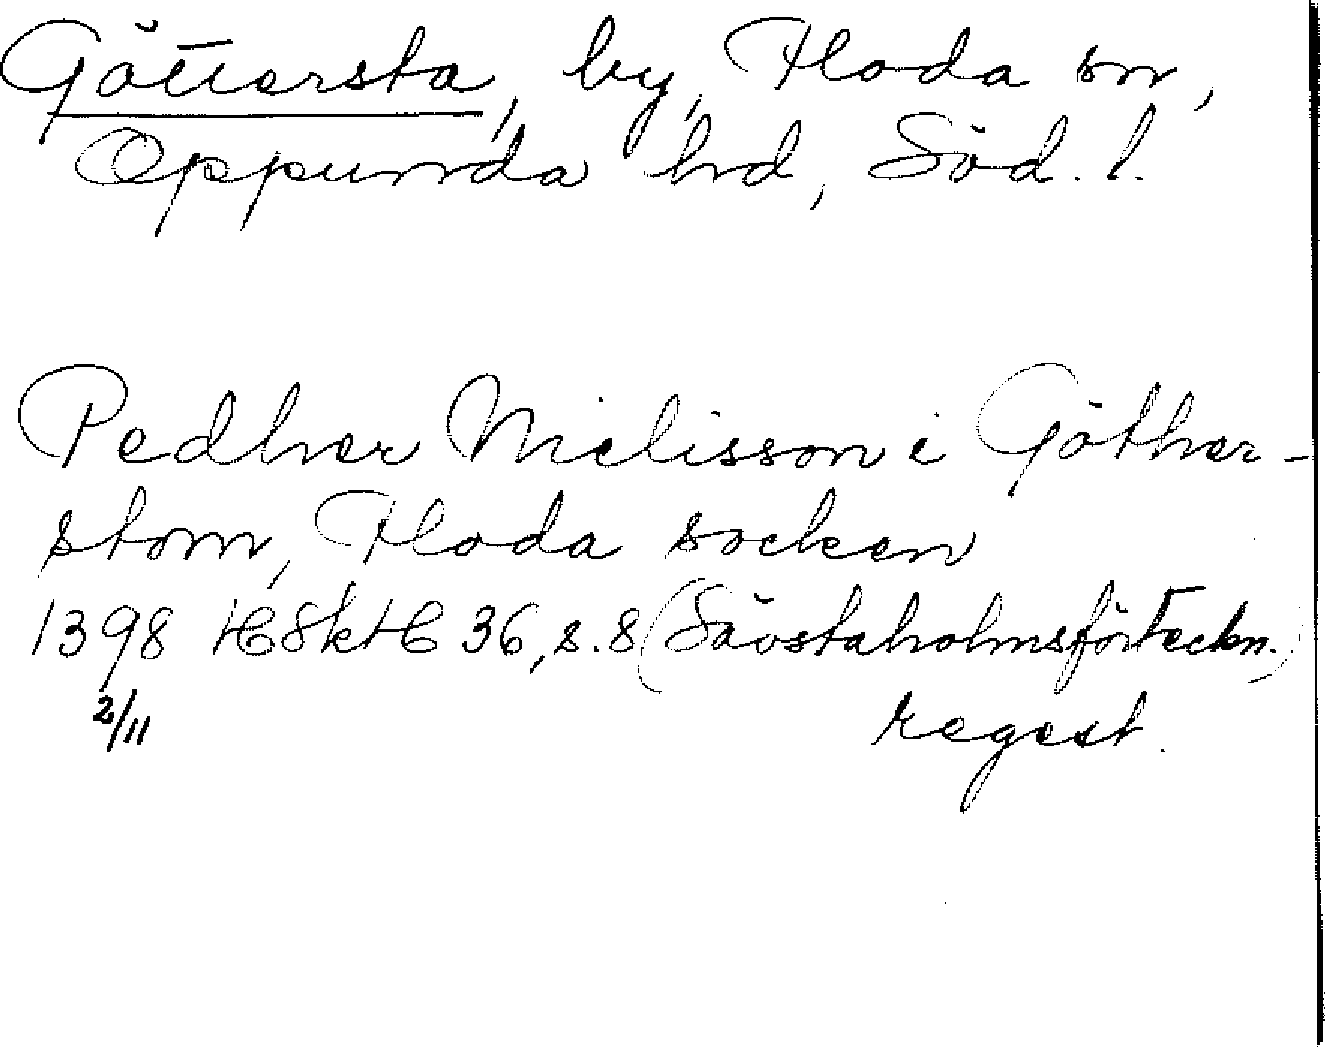 Göttersta, by, Floda sn,
Oppunda hd, Söd. l.
Pedher Nielisson i Göther-
stom, Floda socken
1398 HSkH 36, s. 8 (Sävstaholmsförteckn.)
2/11 regest.